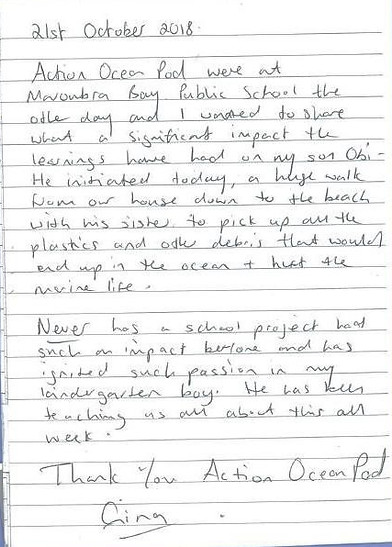 21st October 2018.
Action Ocean Pod were at
Maroubra Bay Public School the
other day and I wanted to share
what a significant impact the
learnings have had on my son Obi -
He initiated today, a huge walk
from our house down to the beach
with his sister to pick up all the
plastics and other debris that would
end up in the ocean + hurt the
marine life.
Never has a school project had
such an impact before and has
ignited such passion in my
kindergarten boy. He has been
teaching us all about this all
week.
Thank You Action Ocean Pod
Gina